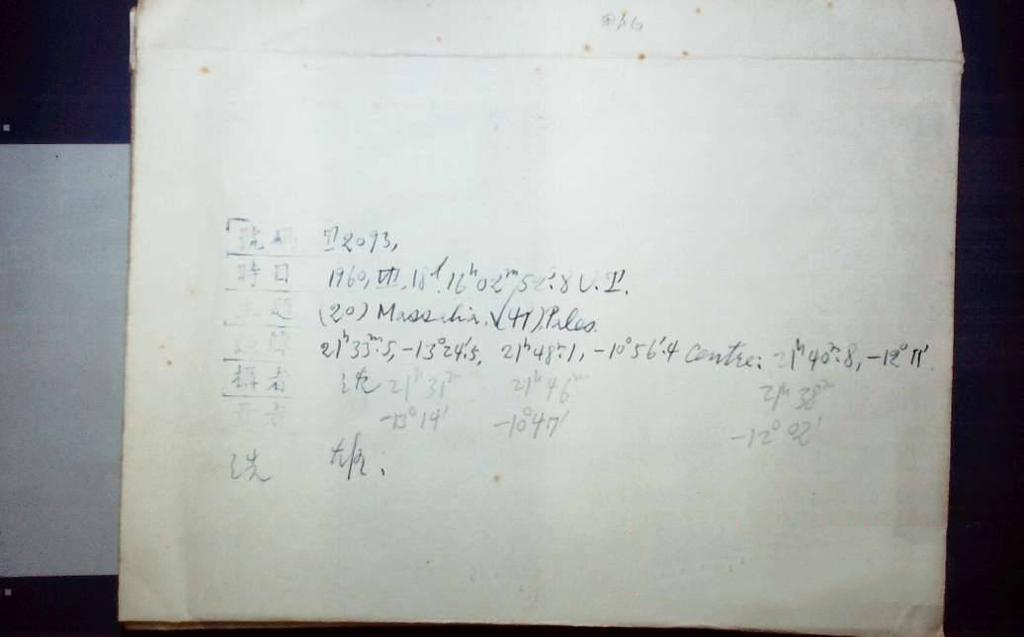 號碼 T2093,
時日 1960, Ⅶ, 18ᵈ.16ʰ02ᵐ52ˢ.8 U.T.
主題 (20) Massalia. √(49) Pales.
21ʰ33ᵐ.5, -13°24'.5, 21ʰ48ᵐ.1, -10°56'.4 Centre: 21ʰ40ᵐ.8, -12°11'.
攝者 沈 21ʰ31ᵐ 21ʰ46ᵐ 21ʰ38ᵐ
-13°14' -10°47' -12°02'